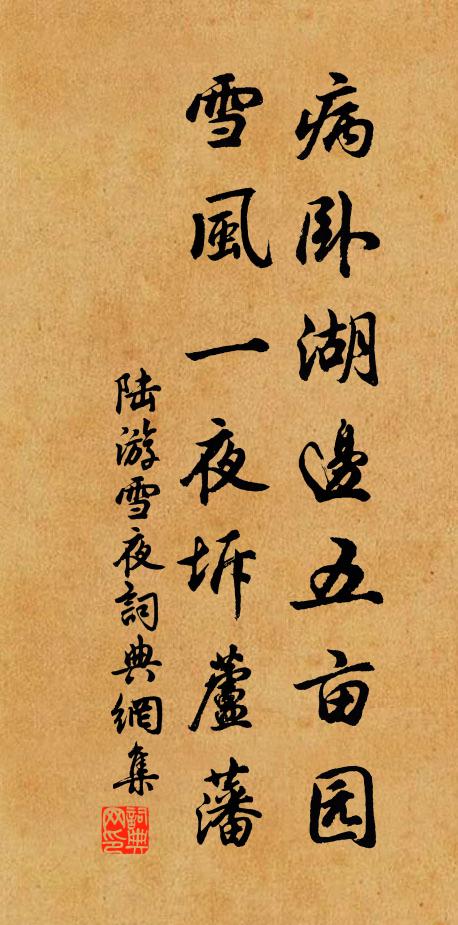 病卧湖邊五亩园
雪風一夜坼蘆藩
陆游雪夜詞典網集
詞典网印